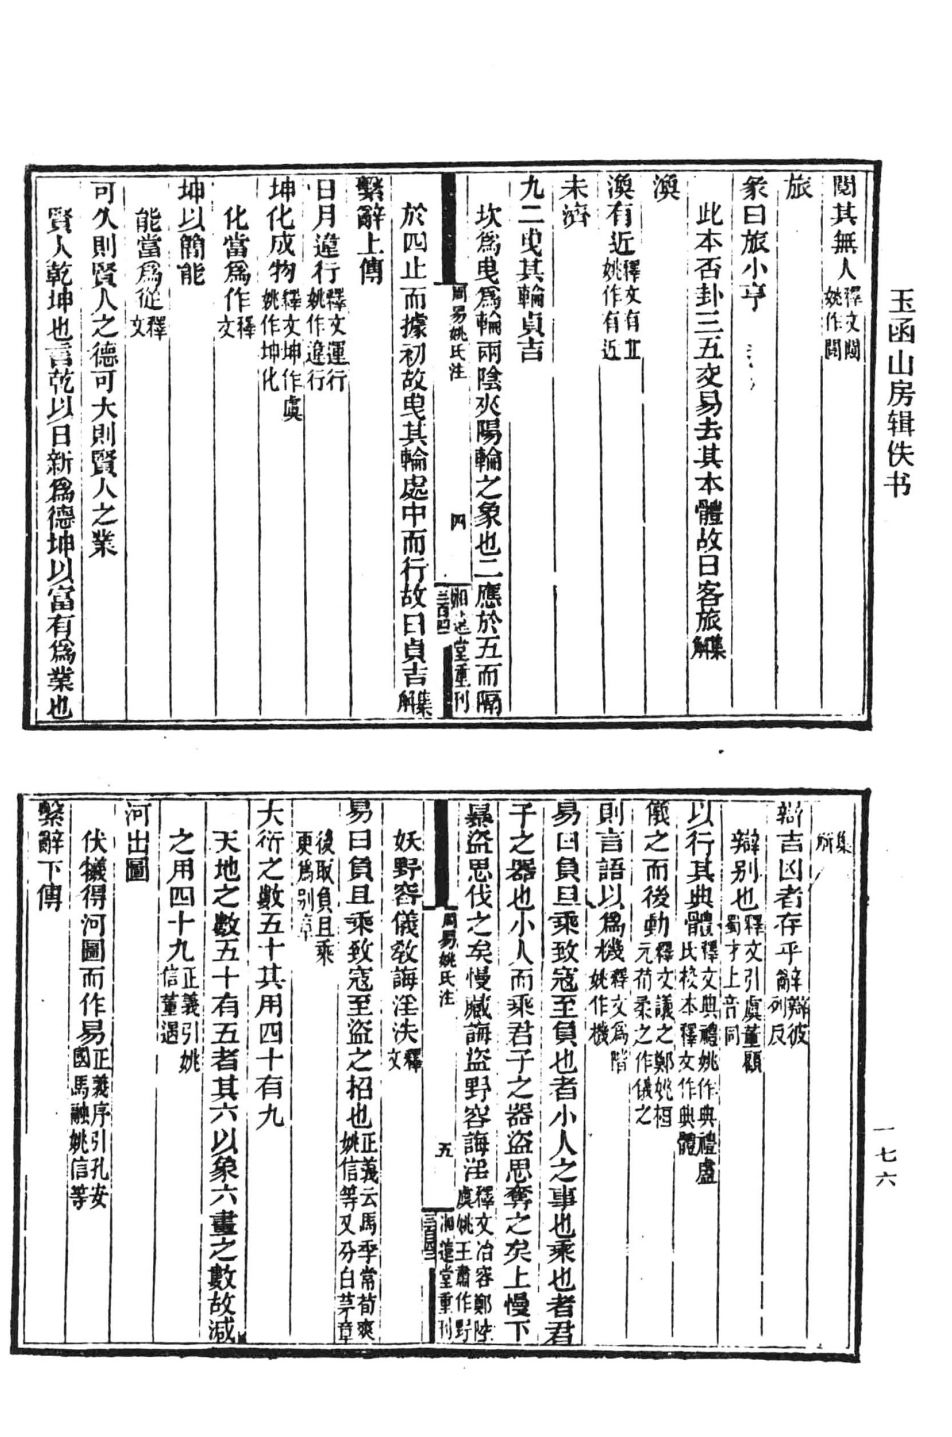 玉函山房辑佚书
闃其無人釋文閴姚作閲
旅
彖曰旅小亨
此本否卦三五交易去其本體故曰客旅集解
渙
渙有近釋文有丘姚作有近
未濟
九二曳其輪貞吉
坎為曳為輪兩陰夾陽輪之象也二應於五而隔
周易姚氏注
四
湘遠堂重刊
於四止而據初故曳其輪處中而行故曰貞吉集解
繫辭上傳
日月違行釋文運行姚作違行
坤化成物釋文坤作虞姚作坤化
化當為作釋文
坤以簡能
能當為從釋文
可久則賢人之德可大則賢人之業
賢人乾坤也言乾以日新為德坤以富有為業也
集解
辯吉凶者存乎辭辯彼列反
辯别也釋文引虞董顧蜀才上音同
以行其典體釋文典禮姚作典禮盧氏校本釋文作典體
儀之而後動釋文議之鄭姚桓元荀柔之作儀之
則言語以為機釋文為階姚作機
易曰負且乘致寇至負也者小人之事也乘也者君
子之器也小人而乘君子之器盜思奪之矣上慢下
暴盜思伐之矣慢藏誨盜野容誨淫釋文冶容鄭陸虞姚王肅作野
周易姚氏注
五
湘遠堂重刊
妖野容儀教誨淫泆釋文
易曰負且乘致寇至盜之招也正義云馬季常荀爽姚信等又分白茅章
後取負且乘更為别章
大衍之數五十其用四十有九
天地之數五十有五者其六以象六畫之數故減
之用四十九正義引姚信董遇
河出圖
伏犧得河圖而作易正義序引孔安國馬融姚信等
繫辭下傳
一七六